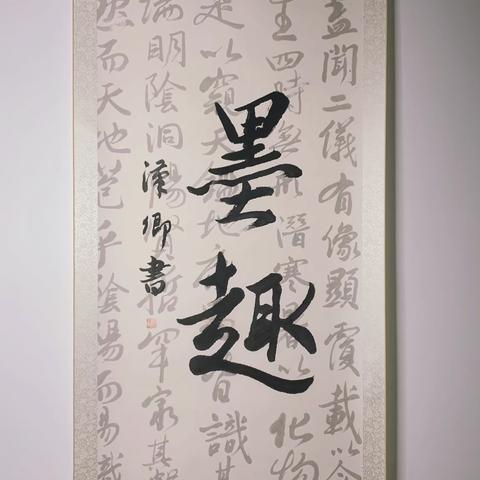 墨趣
漢卿書
盖聞二儀有像顯覆載以含
生四時無形潛寒暑以化物
是以窺天鑑地庸愚皆識其
端明陰洞陽賢哲罕窮其數
然而天地苞乎陰陽而易識